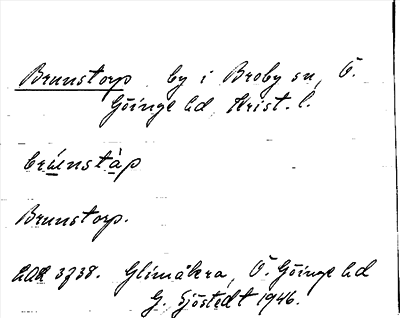 Brunstorp by i Broby sn, Ö.
Göinge hd Krist. l.
brúenstàp
Brunstorp.
3738. Glimåkra, Ö. Göinge hd
G. Sjöstedt 1946.